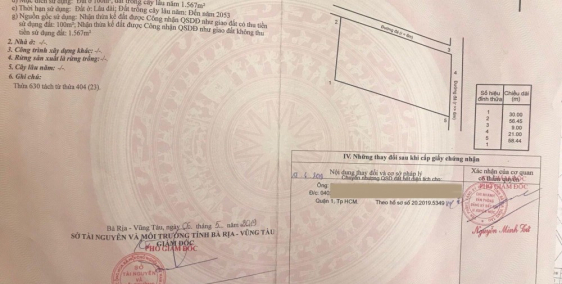 dụng: Đất ở 100m², đất trồng cây lâu năm 1.567m²
e) Thời hạn sử dụng: Đất ở: Lâu dài; Đất trồng cây lâu năm: Đến năm 2053
g) Nguồn gốc sử dụng: Nhận thừa kế đất được Công nhận QSDĐ như giao đất có thu tiền
sử dụng đất: 100m²; Nhận thừa kế đất được Công nhận QSDĐ như giao đất không thu
tiền sử dụng đất: 1.567m²
2. Nhà ở: -/-
3. Công trình xây dựng khác: -/-
4. Rừng sản xuất là rừng trồng: -/-
5. Cây lâu năm: -/-
6. Ghi chú:
Thửa 630 tách từ thửa 404 (23).
Bà Rịa - Vũng Tàu, ngày tháng 5 năm 2019
SỞ TÀI NGUYÊN VÀ MÔI TRƯỜNG TỈNH BÀ RỊA - VŨNG TÀU
GIÁM ĐỐC
PHÓ GIÁM ĐỐC
SỞ
TÀI NGUYÊN
2
3
1
4
5
Số hiệu đỉnh thửa Chiều dài (m)
1 30.00
2 56.45
3 9.00
4 21.00
5 58.44
1
IV. Những thay đổi sau khi cấp giấy chứng nhận
Nội dung thay đổi và cơ sở pháp lý
Xác nhận của cơ quan
có thẩm quyền
Ông:
Đ/c: 040
Quận 1, Tp HCM. Theo hồ sơ số 20.2019.5349
GIÁM ĐỐC